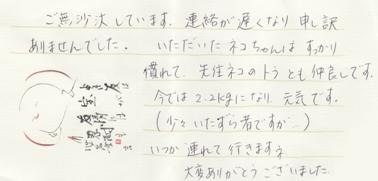 ご無沙汰しています。連絡が遅くなり申し訳
ありませんでした。 いただいたネコちゃんは すっかり
慣れて、先住ネコのトラとも仲良しです。
今では2.2kgになり、元気です。
(少々いたずら者ですが…)
いつか連れて行きますネ
大変ありがとうございました。